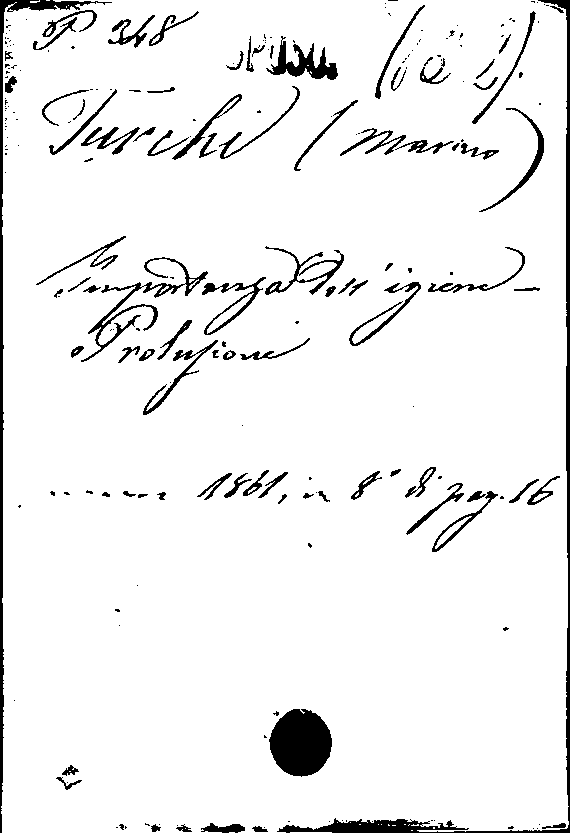 P. 348 OPUSC. (
Turchi (Marino)
Importanza dell'igiene -
Prolusione
...... 1861, in 8° di pag. 16